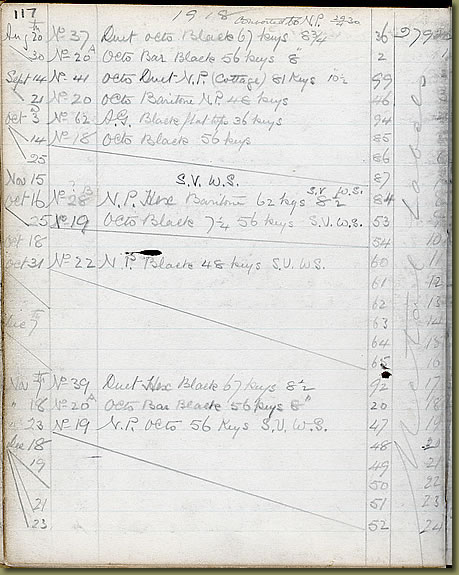 117 1918 Converted to N.P. 29.30
Aug 20 No 37 Duet Octo Black 67 keys 8¾ 36
30 No 20A Octo Bar Black 56 keys 8" 2
Sept 14 No 41 Octo Duet N.P. (Cottage) 81 Keys 10½ 99
21 No 20 Octo Baritone N.P. 48 keys 46
Oct 3 No 62 A.G. Black flat tops 36 keys 94
14 No 18 Octo Black 56 keys 85
25 86
Nov 15 S.V. W.S. 87
Oct 16 No 28 N.P. Hex Baritone 62 keys 8½ S.V. W.S. 84
25 No 19 Octo Black 7¼ 56 keys S.V. W.S. 53
Oct 18 54 10
Oct 31 No 22 N.P. Black 48 keys S.V. W.S. 60 11
61 12
62 13
Dec 7 63 14
64 15
65 16
Nov No 39 Duet Hex Black 67 keys 8½ 92 17
" 18 No 20A Octo Bar Black 56 keys 8" 20 18
" 23 No 19 N.P. Octo 56 Keys S.V. W.S. 47 19
Dec 18 48
19 49 21
50 22
21 51 23
23 52 24